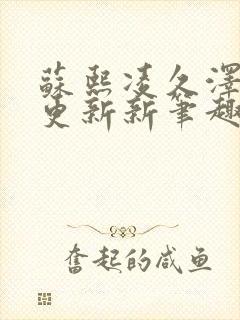 蘇熙凌久澤
更新新筆趣
奮起的咸鱼